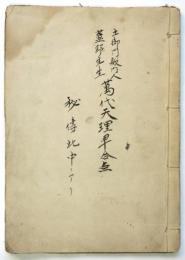 土御門殿門人
蓋路先生 萬代天理早合点
秘傳此中ニアリ